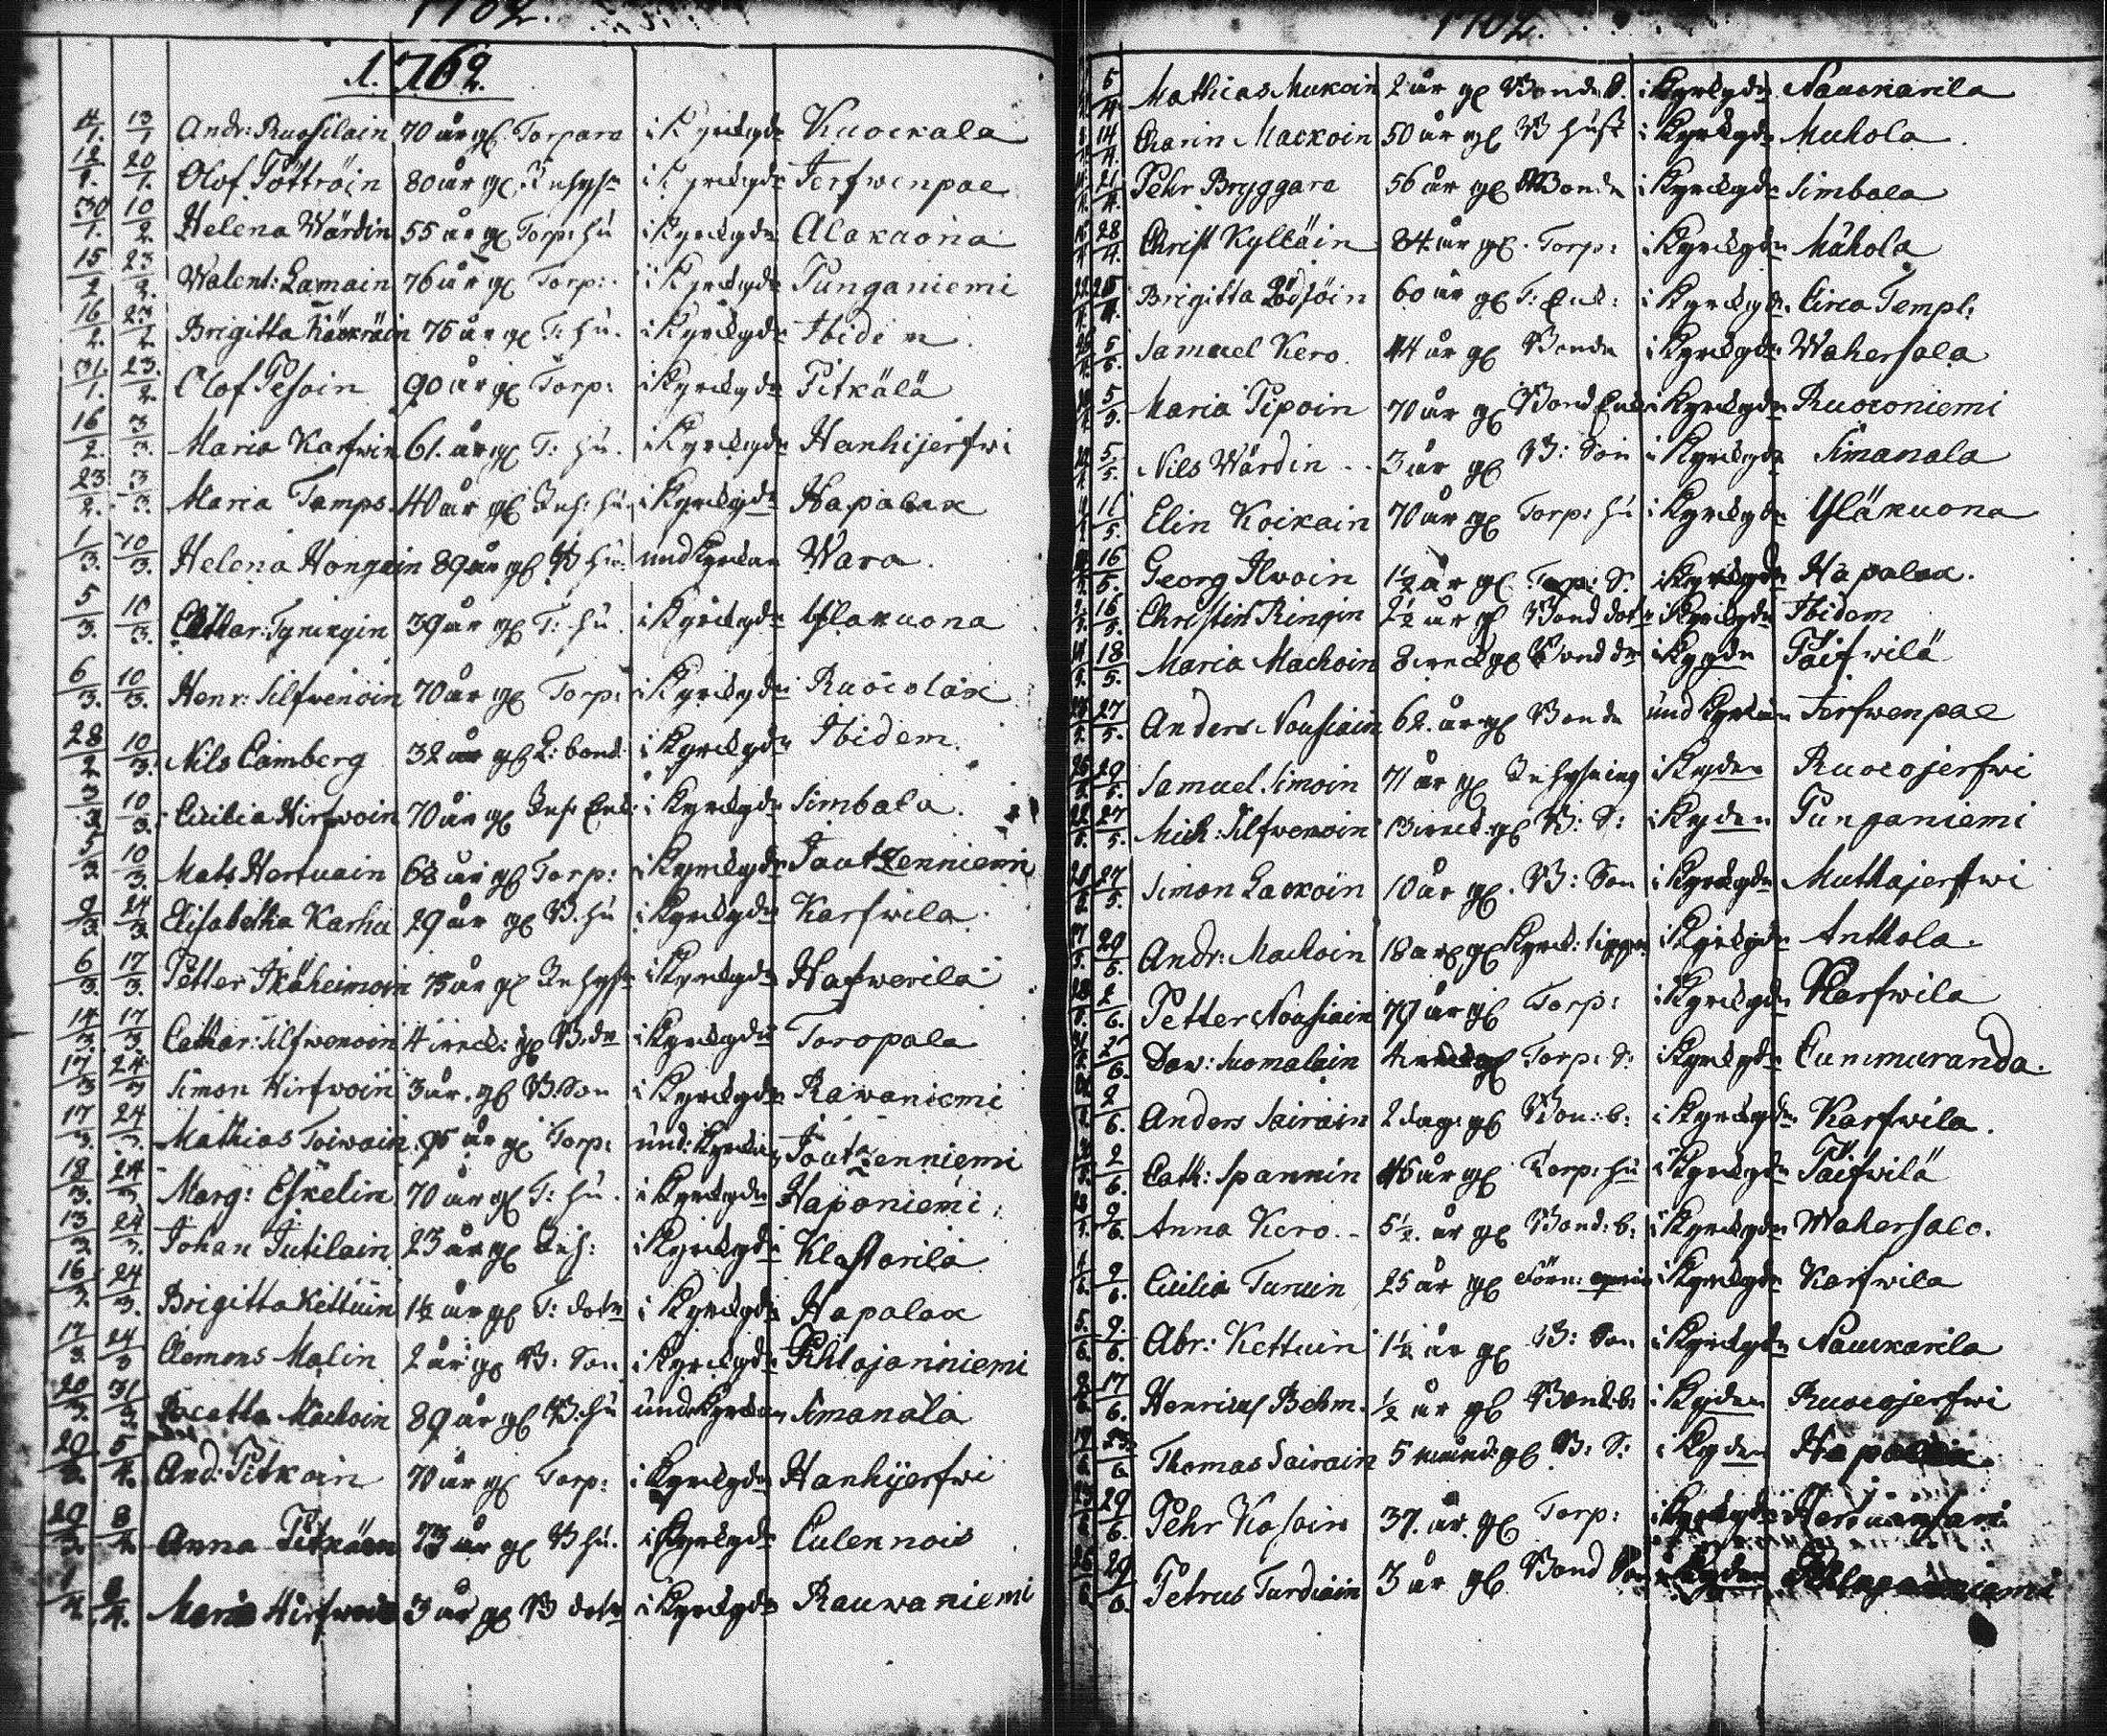 1762.
1762.
4/1. 13/1 Andr: Ruosilain 70 år gl. Torpare i Kyrckgdn Kuockala
12/1. 20/1. Olof Pöttröin 80 år gl. Inhyss i Kyrckgdn Jerfwenpae
30/1. 10/2. Helena Wärdin 55 år gl Torp: hu i Kyrckgdn Alakuona
15/2 23/2. Walent: Lamain 76 år gl Torp: i Kyrckgdn Punganiemi
16/2. 23/2. Brigitta 75 år gl T: hu. i Kyrckgdn Ibidem
31/1. 23/2. Olof Pesoin 90 år gl Torp: i Kyrckgdn Pitkälä
16/2. 3/3. Maria Karfwin 61. år gl T: hu. i Kyrckgdn Hanhijerfwi
23/2. 3/3. Maria Tamps. 40 år gl Inh: hu. i Kyrckgdn Hapalax
1/3. 10/3. Helena Hongain 89 år gl B hu. und Kyrckan Wara.
5/3. 10/3. Cathar: Tynckyin 39 år gl T: hu i Kyrckgdn Ylakuona
6/3. 10/3. Henr: Silfwenoin 70 år gl Torp: i Kyrckgdn Ruocolax
28/2 10/3. Nils Camberg 32 år gl L: bond. i Kyrckgdn Ibidem.
3/3 10/3. Cicilia Hirfwoin 70 år gl Inh: Enk: i Kyrckgdn Simbala.
5/3. 10/3. Mats Hertuain 68 år gl Torp: i Kyrckgdn Joutzenniemi
9/3. 24/3 Elisabetha Karhu 29 år gl B. hu i Kyrckgdn Karfwila.
6/3. 17/3. Petter Ikäheimoin 75 år gl Inhyss i Kyrckgdn Hafwerila
14/3. 17/3 Cathar: Silfwenoin 4 weck: gl B. dr i Kyrckgdn Toropala
17/3 24/3 Simon Hirfwoin 3 år. gl B: Son i Kyrckgdn Rawaniemi
17/3. 24/3. Mathias Toiwain 95 år gl Torp: und: Kyrckan Joutzenniemi
18/3. 24/3. Marg: Eskelin 70 år gl T: hu. i Kyrckgdn Haponiemi.
13/3 24/3. Johan Jutilain 23 år gl Inh: i Kyrckgdn Klostarila
16/3. 24/3. Brigitta Kettuin 1½ år gl T: dotr i Kyrckgdn Hapalax
17/3. 24/3 Clemens Malin 2 år gl B: Son i Kyrckgdn Pihlajanniemi
20/3. 31/3. Beatta Mackoin 89 år gl B: hu und: Kyrckan Simanala
29/3. 5/4. And: Pitkain 70 år gl Torp: i Kyrckgdn Hanhijerfwi
29/3. 8/4 Anna Pitkäin 73 år gl B hu. i Kyrckgdn Eulennois
1/4. 8/4. Maria 3 år gl B dotr i Kyrckgdn Rauwaniemi
5/4 Mathias Mukoin 2 år gl Bonde S. i Kyrckgdn Nauckarila
14/4. Carin Mackoin 50 år gl B hust i Kyrckgdn Muhola.
21/4. Pehr Bryggare 56 år gl Bonde i Kyrckgdn Simbala
28/4. Christ Kylläin 84 år gl. Torp: i Kyrckgdn Måhola
Brigitta 60 år gl T: Enk: i Kyrckgdn Circa Templ:
5/5. Samuel Kero 44 år gl Bonde i Kyrckgdn Wahersala
5/5. Maria Pipoin 70 år gl Bond Enk i Kyrckgdn Ruoconiemi
5/5. Nils Wärdin 3 år gl B: Son i Kyrckgdn Simanala
11/5. Elin Koikain 70 år gl Torp: hu i Kyrckgdn Yläkuona
16/5. Georg Ilwoin 1½ år gl Torp: S. i Kyrckgdn Hapalax.
16/5. Christin Ringin 2½ år gl Bond dotr i Kyrckgdn Ibidem
18/5. Maria Mackoin 8 weck gl Bond dr i Kygdn Päifwilä
27/5. Anders Nousiain 62. år gl Bonde und Kyrckan Jerfwenpae
20/5. Samuel Simoin 71 år gl Inhysning i Kygden Ruocojerfwi
27/5. Mich: Silfwenoin 13 weck. gl B: S: i Kygden Punganiemi
27/5. Simon Lackoin 10 år gl. B: Son i Kyrckgdn Muthajerfwi
29/5. Andr: Mackoin 18 år gl Kyrck: tiggar. i Kyrckgdn Anthola.
2/6. Petter Nousiain 79 år gl Torp: i Kyrckgdn Karfwila
2/6. Daw: Suomalain 4 weck gl Torp: S: i Kyrckgdn Cummuranda.
2/6. Anders Sairain 2 dag: gl Bon: b: i Kyrckgdn Karfwila.
2/6. Cath: Spannin 45 år gl Torp: hu i Kyrckgdn Päifwilä
9/6. Anna Kero. 5½. år gl Bond: b: i Kyrckgdn Wahersalo.
9/6. Cicilia Turuin 25 år gl i Kyrckgdn Karfwila
9/6. Abr: Kettuin 1½ år gl B: Son i Kyrckgdn Nauckarila
17/6. Henricus Behm. ½ år gl Bond: b. i Kygden Ruocojerfwi
Thomas Sairain 5 månd: gl B: S: i Kygden Hapalax.
29/6. Pehr Kosoin 37. år gl Torp: i Kyrckgdn
29/6. Petrus Turdiain 3 år gl Bond Son i Kygden